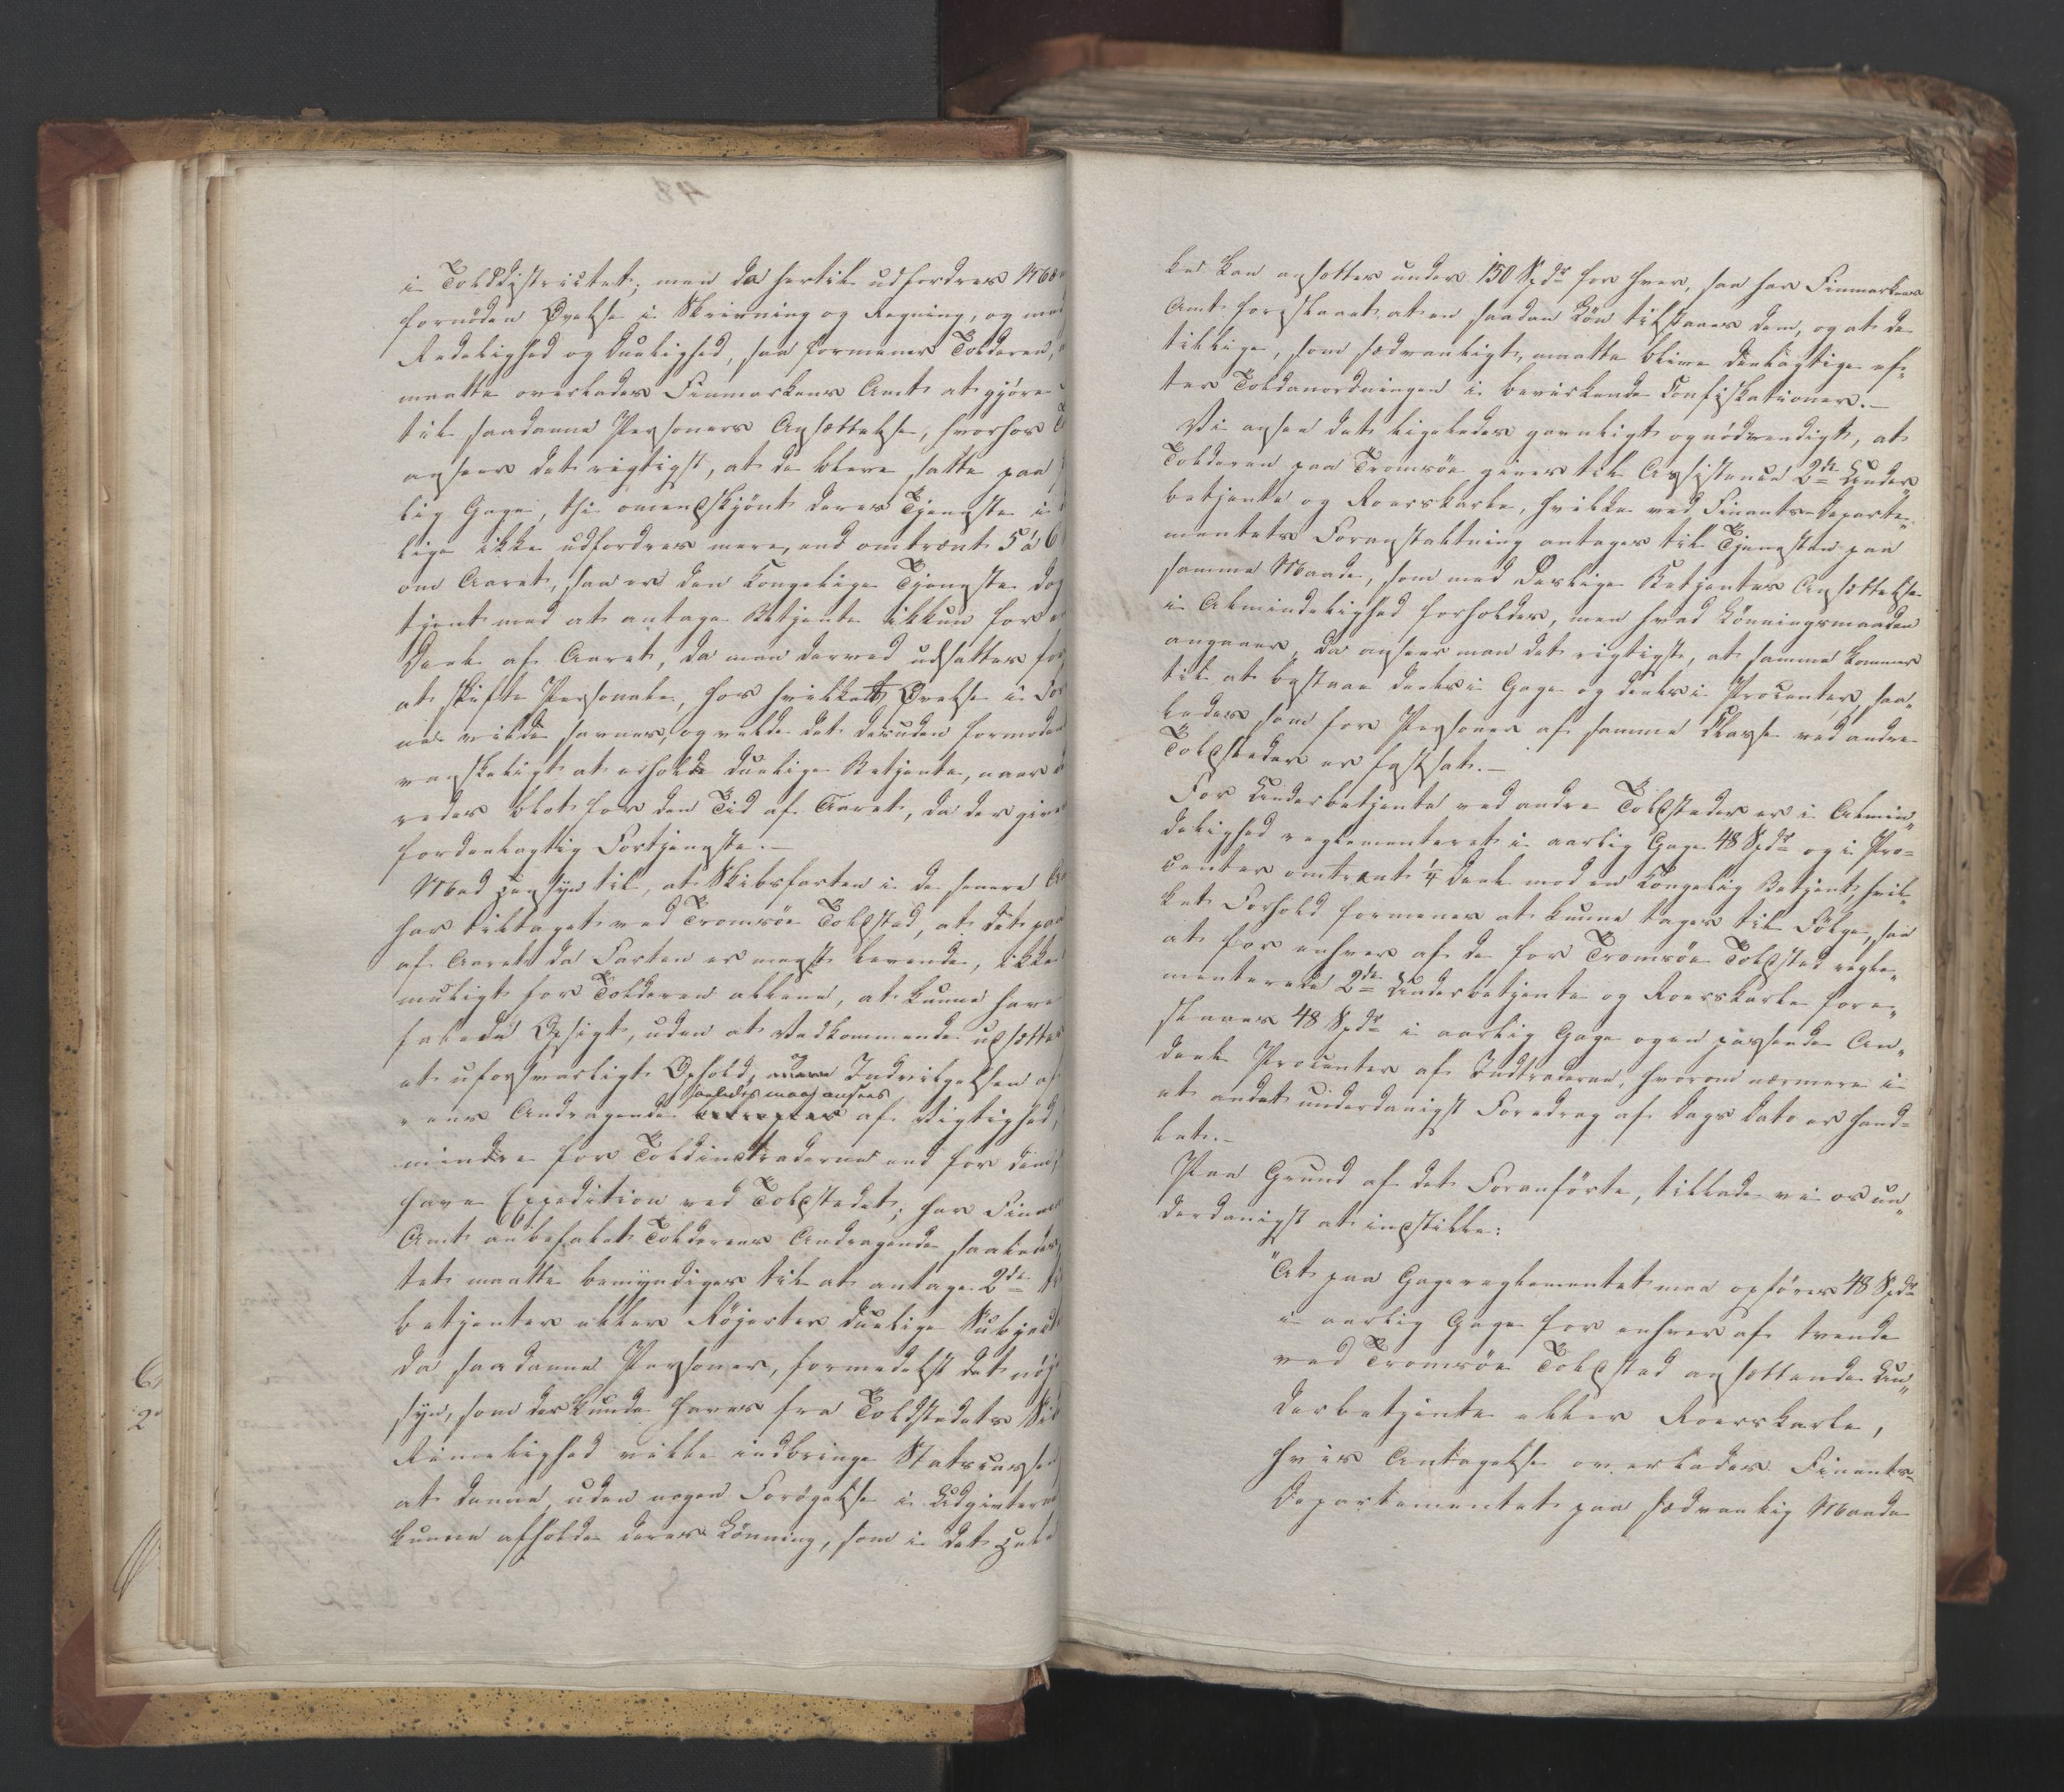 i Tolddistrictet; men da hertil udfordres Mæ
fornøden Øvelse i Skrivning og Regning, og med
Redelighed og Duelighed, saa formener Tolderen,
maatte overlades Finmarkens Amt at gjøre
til saadanne Personers Ansættelse, hvorhos
ansees det rigtigst, at de bleve satte paa
lig Gage, thi omendskjønt deres Tjeneste i
lige ikke udfordres mere, end omtrent 5 á 6
om Aaret, saa er den Kongelige Tjeneste dog
tjent med at antage Betjente ikkun for en
Deel af Aaret, da man derved udsættes for
at skifte Personale, hos hvilket Øvelse i For
ne vilde savnes, og vilde det desuden formeden
vanskeligt at erholde duelige Betjente, naar
redes blot for den Tid af Aaret, da der give
fordeelagtig Fortjeneste.-
Med Hensyn til, at Skibsfarten i de senere Aa
har tiltaget ved Tromsøe Toldsted, at det paa
af Aaret da Farten er meest levende, ikke
muligt for Tolderen allene, at kunne have
falede Opsigt, uden at Vedkommende udsættes
et uforsvarligt Ophold, Indvilgelsen af
saaledes maa ansees
rens Andragende af Vigtighed,
mindre for Toldintraderne end for dem,
have Expedition ved Toldstedet; har Finm
Amt anbefalet Tolderens Andragende saaledes,
tet maatte bemyndiges til at antage 2de
betjenter eller Røgerter duelige Subject
da saadanne Personer, formedelst det nøj
syn, som der kunde haves fra Toldstedets Si
Rimelighed ville indbringe Statscassen
at denne, uden nogen Forøgelse i Udgifterne
kunne afholde deres Lønning, som i det Hele
ke kan ansættes under 150 Spdr for hver, saa har Finmarkens
Amt foreslaaet at en saadan Løn tilstaaes dem, og at de
tillige, som sædvanligt, maatte blive deelagtige ef-
ter Toldanordningen i bevirkende Confiskationer.-
Vi ansee det ligeledes gavnligt og nødvendigt, at
Tolderen paa Tromsøe gives til Assistence 2de Under-
betjente og Roerskarle, hvilke ved Finants-Departe-
mentets Foranstaltning antages til Tjenesten paa
samme Maade, som med deslige Betjentes Ansættelse
i Almindelighed forholdes, men hvad Lønningsmaaden
angaaer, da ansees man det rigtigst, at samme kommer
til at bestaae deels i Gage og deels i Procenter, saa-
ledes som for Personer af samme Klasse ved andre
Toldsteder er fastsat.-
For Underbetjente ved andre Toldsteder er i Almin-
delighed reglementeret i aarlig Gage 48 Spdr og i Pro-
center omtrent 1/4 Deel mod en Kongelig Betjent, hvil-
ket Forhold formenes at kunne tages til Følge, saa
at for enhver af de for Tromsøe Toldsted regle-
menterede 2de Underbetjente og Roerskarle fore-
slaaes 48 Spdr i aarlig Gage og en passende An-
deel Procenter af Indtraderne, hvorom nærmere i
et andet underdanigst Foredrag af Dags Dato er hand-
let.-
Paa Grund af det Foranførte, tillade vi os un-
derdanigst at indstille:
"At paa Gagereglementet maa opføres 48 Spdr
i aarlig Gage for enhver af tvende
ved Tromsøe Toldsted ansættende Un-
derbetjente eller Roerskarle,
hvis Antagelse overlades Finants-
Departementet paa sædvanlig Maade